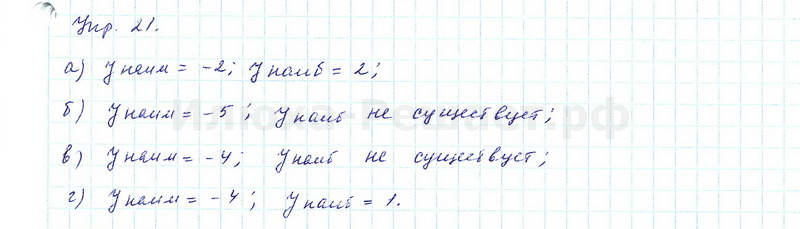 Упр. 21.
а) y наим = -2; y наиб = 2;
б) y наим = -5; y наиб не существует;
в) y наим = -4; y наиб не существует;
г) y наим = -4; y наиб = 1.